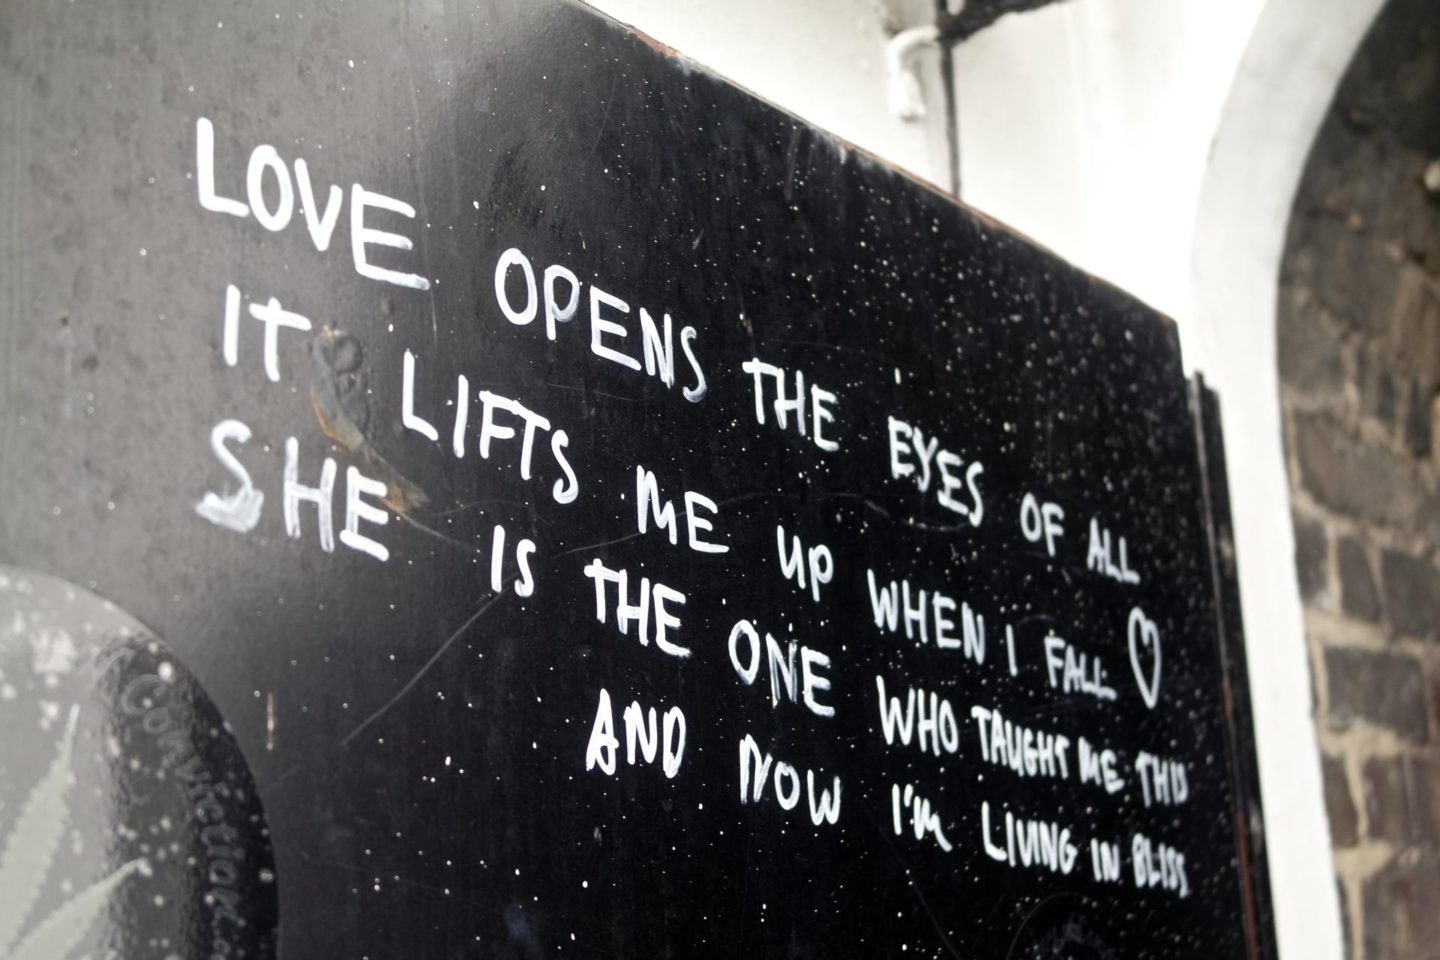 LOVE OPENS THE EYES OF ALL
IT LIFTS ME UP WHEN I FALL ♡
SHE IS THE ONE WHO TAUGHT ME THIS
AND NOW I'M LIVING IN BLISS